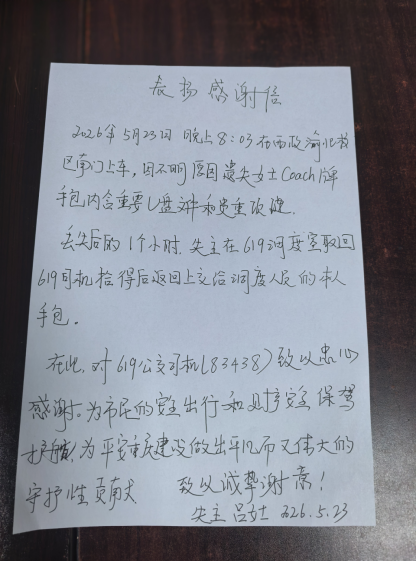 表扬感谢信
2026年5月23日 晚上8:03在西政渝北校
区南门上车,因不明原因遗失女士Coach牌
手包内含重要U盘文件和贵重项链.
丢失后的1个小时.失主在619调度室取回
619司机拾得后返回上交给调度人员的本人
手包。
在此.对619公交司机(83438)致以忠心
感谢。为市民的安全出行和财产安全保驾
护航为平安重庆建设做出平凡而又伟大的
守护性贡献 致以诚挚谢意!
失主 吕女士 2026.5.23